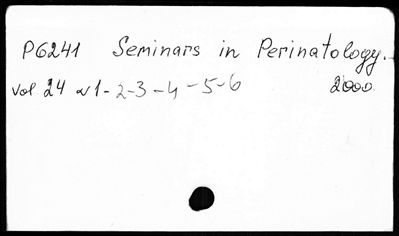 P6241 Seminars in Perinatology.
Vol 24 N1-2-3-4-5-6 2000